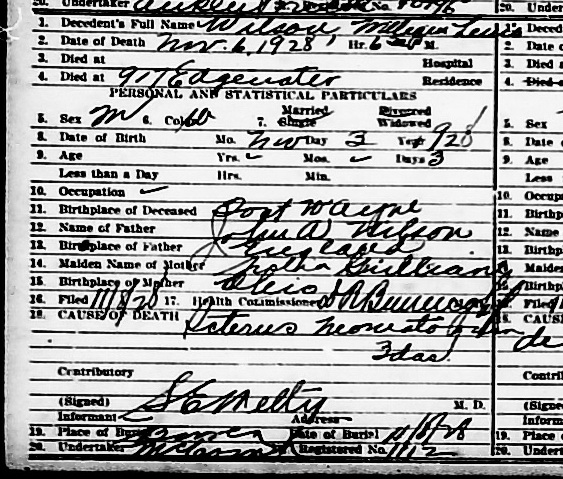 20. Undertaker
1. Decedent's Full Name Wilson,
2. Date of Death Nov. 6, 1928 Hr. 6 M.
3. Died at Hospital
4. Died at 917 Edgewater Residence
PERSONAL AND STATISTICAL PARTICULARS
5. Sex M 6. Color 7. Married Single Divorced Widowed
8. Date of Birth Mo. Nov Day 3 Year 928
9. Age Yrs. Mos. Days 3
Less than a Day Hrs. Min.
10. Occupation
11. Birthplace of Deceased Fort Wayne
12. Name of Father John A. Wilson
13. Birthplace of Father
14. Maiden Name of Mother
15. Birthplace of Mother Ohio
16. Filed 11/8/28 17. Health Commissioner
18. CAUSE OF DEATH Icterus Neonatorum
3 das.
Contributory
(Signed) M. D.
Informant Address
19. Place of Burial Date of Burial 11/8/28
20. Undertaker Registered No. 1112
20. Under
1. Deced
2. Date o
3. Died a
4. Died a
5. Sex
8. Date o
9. Age
Less
10. Occup
11. Birthp
12. Name
13. Birthp
14. Maide
15. Birthp
16. Filed
18. CAUS
de
Contri
(Signe
Inform
19. Place o
20. Under